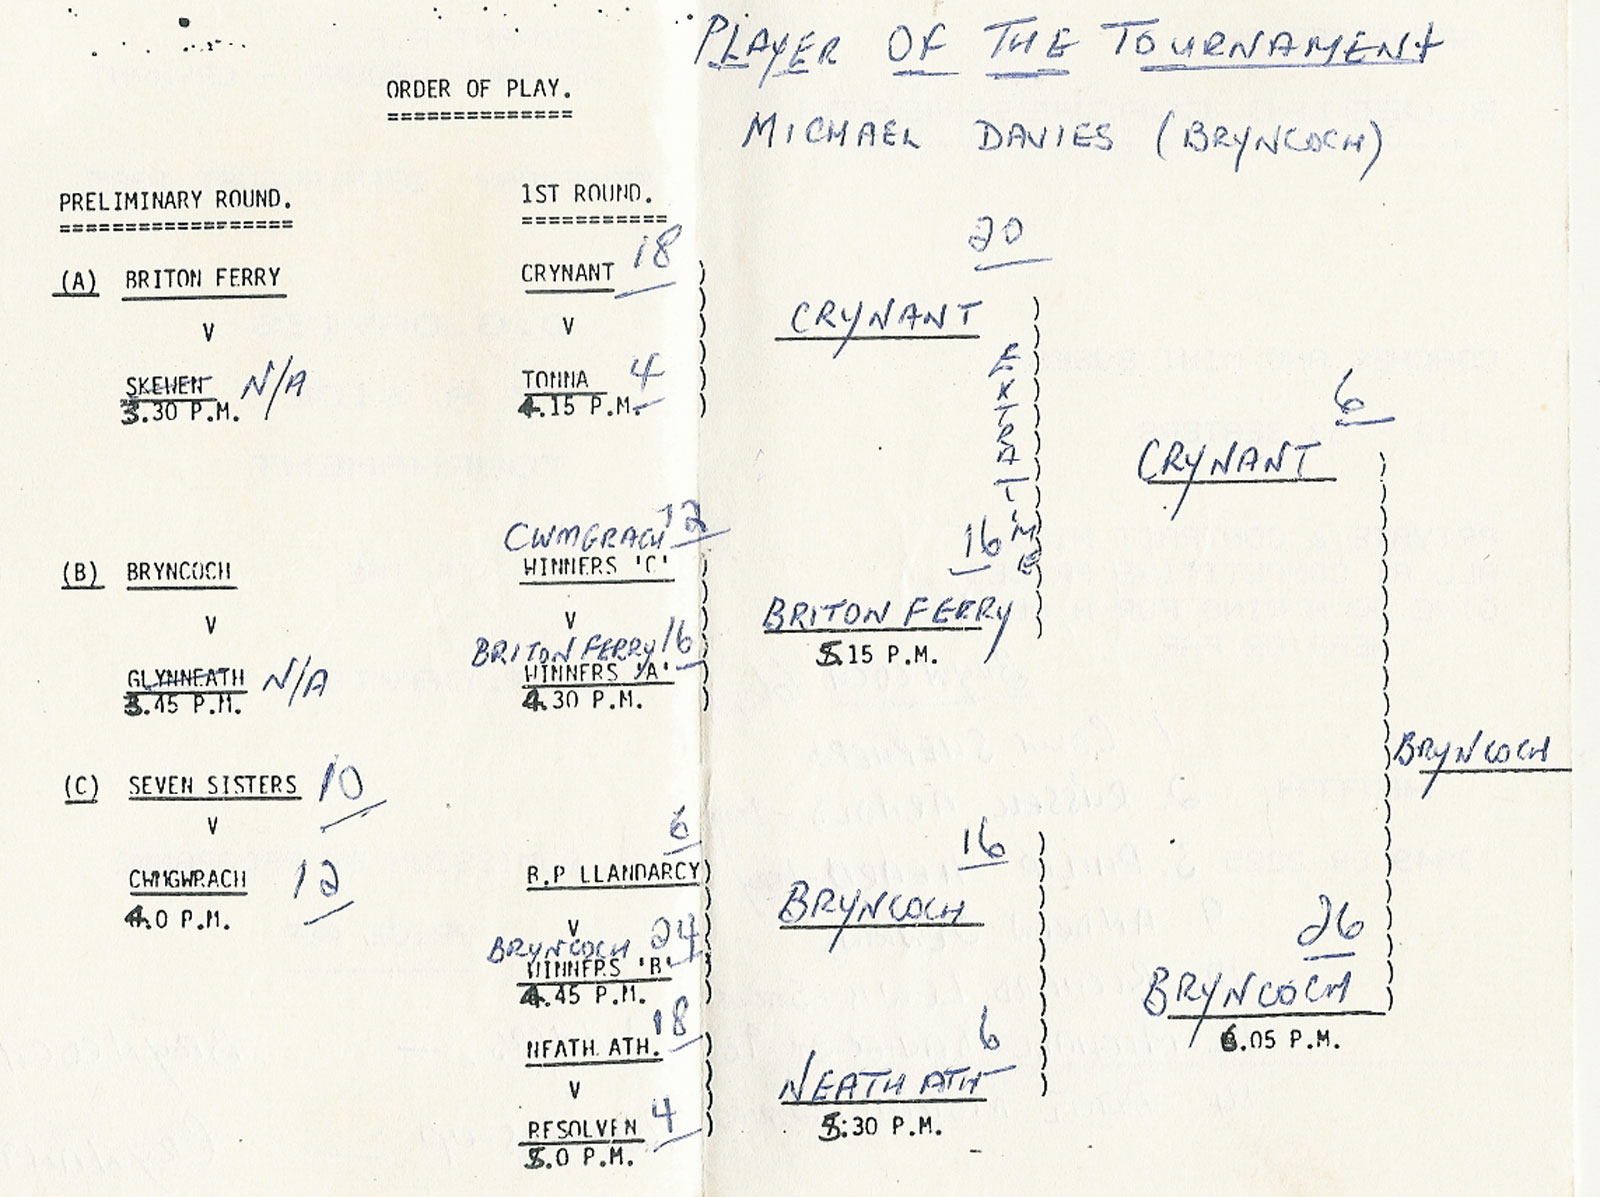 PLAYER OF THE TOURNAMENT
MICHAEL DAVIES (BRYNCOCH)
ORDER OF PLAY.
PRELIMINARY ROUND.
(A) BRITON FERRY
V
SKEWEN N/A
3.30 P.M.
(B) BRYNCOCH
V
GLYNNEATH N/A
3.45 P.M.
(C) SEVEN SISTERS 10
V
CWMGWRACH 12
4.0 P.M.
1ST ROUND.
CRYNANT 18
V
TONNA 4
4.15 P.M.
CWMGRACH 12
WINNERS 'C'
V
BRITON FERRY 16
WINNERS 'A'
4.30 P.M.
6
B.P LLANDARCY
V
BRYNCOCH 24
WINNERS 'B'
4.45 P.M.
18
NEATH ATH.
V
RESOLVEN 4
5.0 P.M.
20
CRYNANT
EXTRA TIME
16
BRITON FERRY
5.15 P.M.
16
BRYNCOCH
6
NEATH ATH
5:30 P.M.
6
CRYNANT
26
BRYNCOCH
6.05 P.M.
BRYNCOCH